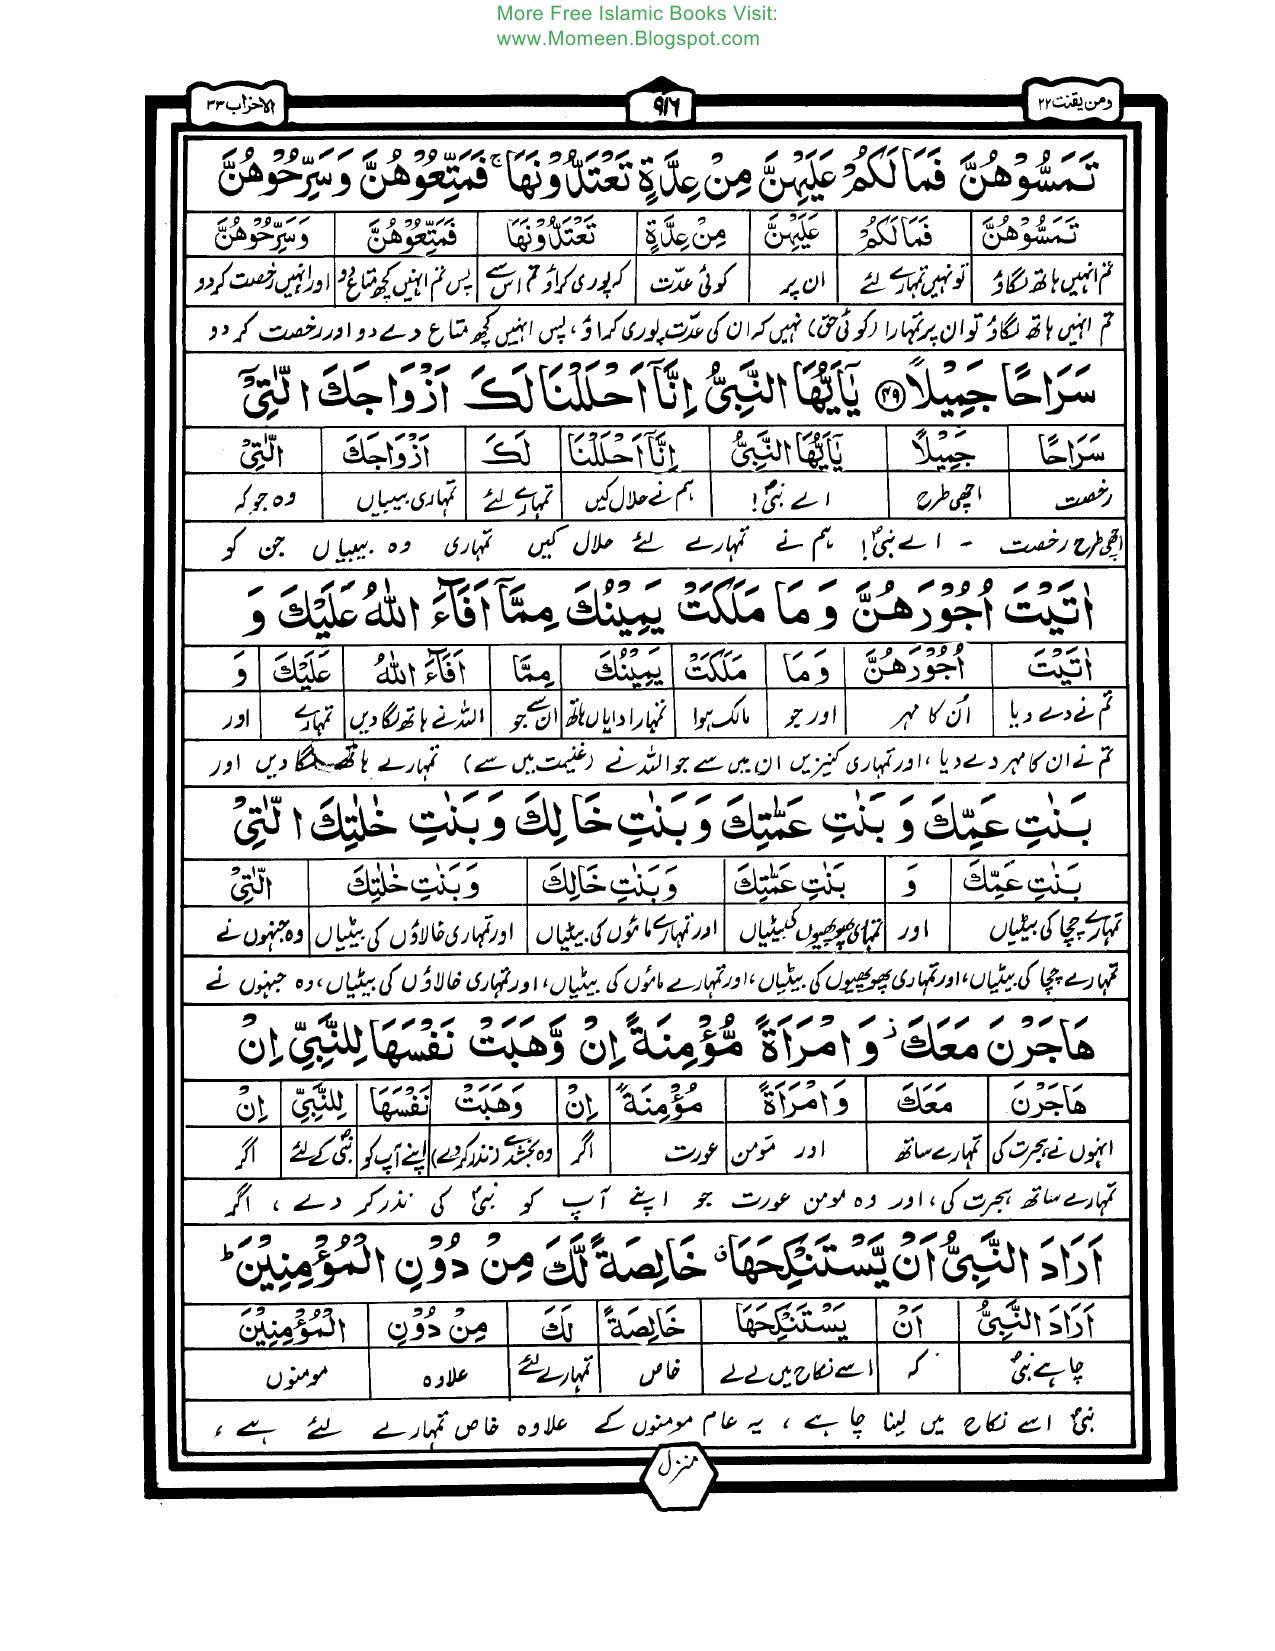 More Free Islamic Books Visit:
www.Momeen.Blogspot.com
ومن یقنت ۲۲
۹۱۶
الاحزاب ۳۳
تَمَسُّوْهُنَّ فَمَا لَكُمْ عَلَيْهِنَّ مِنْ عِدَّةٍ تَعْتَدُّوْنَهَا ۚ فَمَتِّعُوْهُنَّ وَسَرِّحُوْهُنَّ
تَمَسُّوْهُنَّ فَمَا لَكُمْ عَلَيْهِنَّ مِنْ عِدَّةٍ تَعْتَدُّوْنَهَا فَمَتِّعُوْهُنَّ وَسَرِّحُوْهُنَّ
تم انہیں ہاتھ لگاؤ تو نہیں تمہارے لئے ان پر کوئی عدّت کہ پوری کراؤ تم اس سے پس تم انہیں کچھ متاع دو اور انہیں رخصت کر دو
تم انہیں ہاتھ لگاؤ تو ان پر تمہارا (کوئی حق) نہیں کہ ان کی عدّت پوری کراؤ، پس انہیں کچھ متاع دے دو اور رخصت کر دو
سَرَاحًا جَمِيْلًا ﴿۴۹﴾ يٰٓاَيُّهَا النَّبِيُّ اِنَّآ اَحْلَلْنَا لَكَ اَزْوَاجَكَ الّٰتِيْٓ
سَرَاحًا جَمِيْلًا يٰٓاَيُّهَا النَّبِيُّ اِنَّآ اَحْلَلْنَا لَكَ اَزْوَاجَكَ الّٰتِيْ
رخصت اچھی طرح اے نبیؐ! ہم نے حلال کیں تمہارے لئے تمہاری بیبیاں وہ جو کہ
اچھی طرح رخصت ۔ اے نبیؐ! ہم نے تمہارے لئے حلال کیں تمہاری وہ بیبیاں جن کو
اٰتَيْتَ اُجُوْرَهُنَّ وَمَا مَلَكَتْ يَمِيْنُكَ مِمَّآ اَفَآءَ اللّٰهُ عَلَيْكَ وَ
اٰتَيْتَ اُجُوْرَهُنَّ وَمَا مَلَكَتْ يَمِيْنُكَ مِمَّا اَفَآءَ اللّٰهُ عَلَيْكَ وَ
تم نے دے دیا اُن کا مہر اور جو مالک ہوا تمہارا دایاں ہاتھ ان سے جو اللہ نے ہاتھ لگا دیں تمہارے اور
تم نے ان کا مہر دے دیا، اور تمہاری کنیزیں ان میں سے جو اللہ نے (غنیمت میں سے) تمہارے ہاتھ لگا دیں اور
بَنٰتِ عَمِّكَ وَبَنٰتِ عَمّٰتِكَ وَبَنٰتِ خَالِكَ وَبَنٰتِ خٰلٰتِكَ الّٰتِيْ
بَنٰتِ عَمِّكَ وَ بَنٰتِ عَمّٰتِكَ وَبَنٰتِ خَالِكَ وَبَنٰتِ خٰلٰتِكَ الّٰتِيْ
تمہارے چچا کی بیٹیاں اور تمہاری پھوپھیوں کی بیٹیاں اور تمہارے ماموں کی بیٹیاں اور تمہاری خالاؤں کی بیٹیاں وہ جنہوں نے
تمہارے چچا کی بیٹیاں، اور تمہاری پھوپھیوں کی بیٹیاں، اور تمہارے ماموں کی بیٹیاں، اور تمہاری خالاؤں کی بیٹیاں، وہ جنہوں نے
هَاجَرْنَ مَعَكَ ۡ وَامْرَاَةً مُّؤْمِنَةً اِنْ وَّهَبَتْ نَفْسَهَا لِلنَّبِيِّ اِنْ
هَاجَرْنَ مَعَكَ وَامْرَاَةً مُؤْمِنَةً اِنْ وَهَبَتْ نَفْسَهَا لِلنَّبِيِّ اِنْ
انہوں نے ہجرت کی تمہارے ساتھ اور مؤمن عورت اگر وہ بخش دے (نذر کر دے) اپنے آپ کو نبیؐ کے لئے اگر
تمہارے ساتھ ہجرت کی، اور وہ مومن عورت جو اپنے آپ کو نبیؐ کی نذر کر دے، اگر
اَرَادَ النَّبِيُّ اَنْ يَّسْتَنْكِحَهَا ۤ خَالِصَةً لَّكَ مِنْ دُوْنِ الْمُؤْمِنِيْنَ ؕ
اَرَادَ النَّبِيُّ اَنْ يَسْتَنْكِحَهَا خَالِصَةً لَكَ مِنْ دُوْنِ الْمُؤْمِنِيْنَ
چاہے نبیؐ کہ اسے نکاح میں لے لے خاص تمہارے لئے علاوہ مومنوں
نبیؐ اسے نکاح میں لینا چاہے، یہ عام مومنوں کے علاوہ خاص تمہارے لئے ہے،
منزل